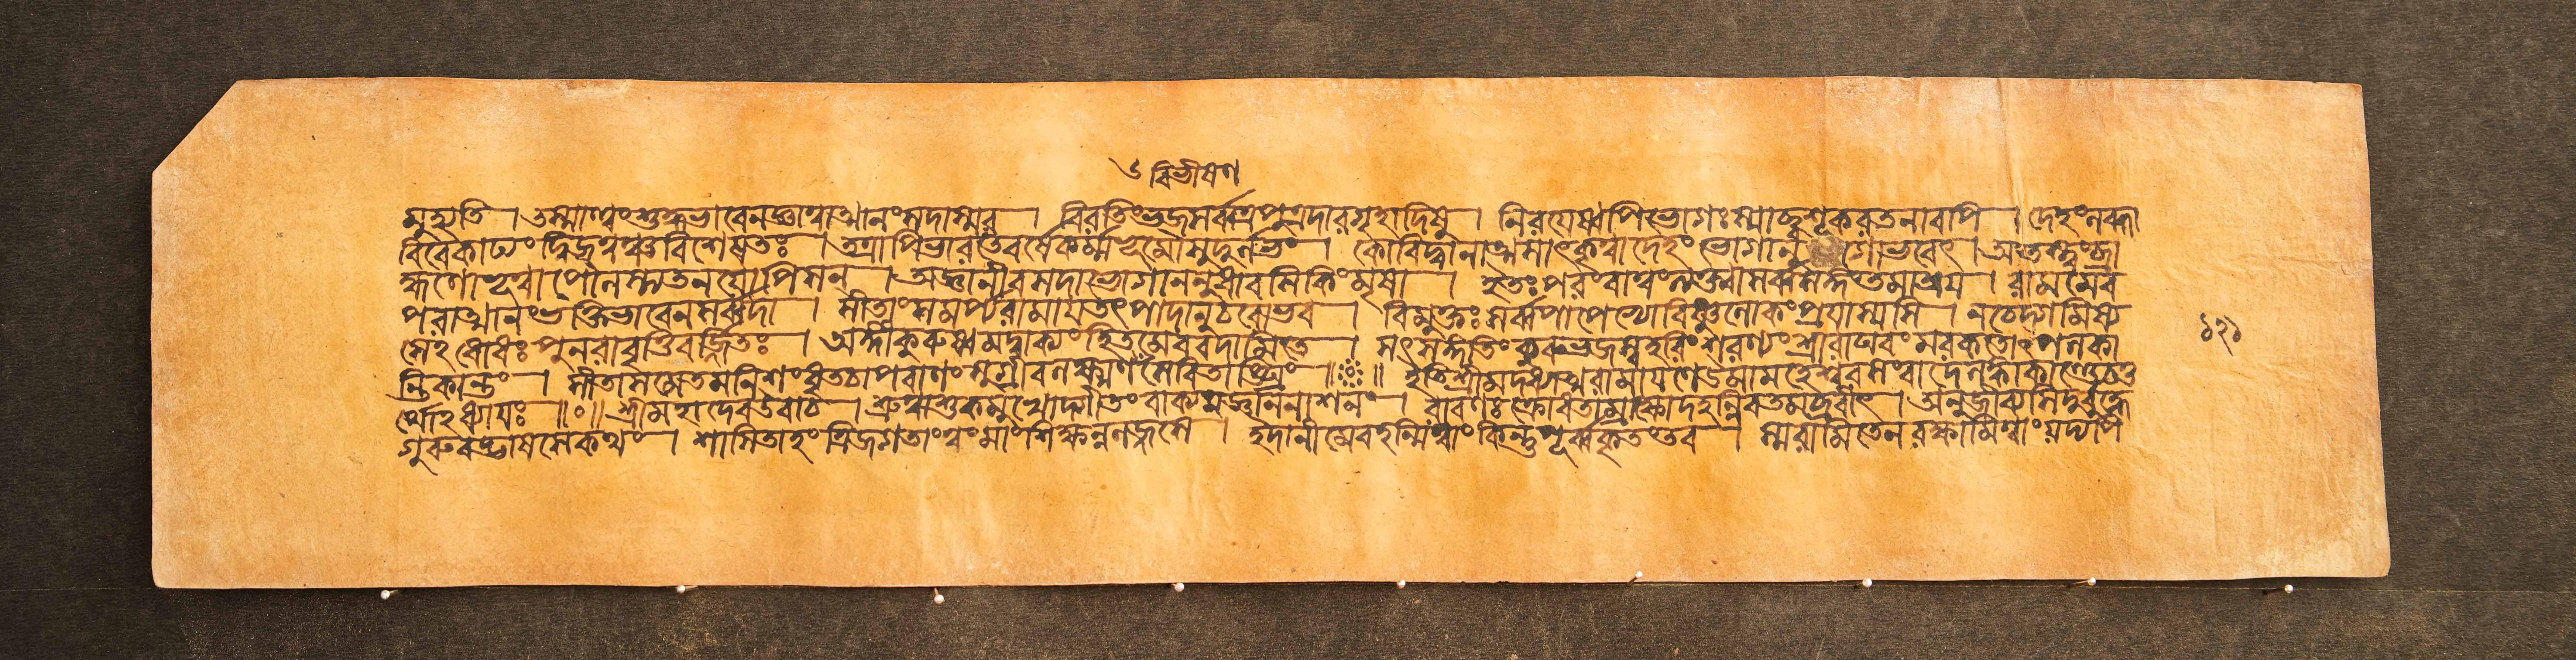 ৬ বিভীষণ
মুহ্যতি । তস্মাত্ত্বং শুদ্ধভাবেন জ্ঞাত্বাত্মানং সদাস্মর । বিরতিং ভজ সর্ব্বত্র পুত্রদারগৃহাদিষু । নিরয়েষ্বপি ভোগঃ স্যাচ্ছ্বশূকরতনাবপি । দেহং লব্ধ্বা
বিবেকাঢ্যং দ্বিজত্বঞ্চ বিশেষতঃ । তত্রাপি ভারতে বর্ষে কর্ম্মভূমৌ সুদুর্লভং । কো বিদ্বানাত্মসাৎকৃত্বা দেহং ভোগানু গো ভবেৎ । অতস্ত্বং ব্রা
হ্মণো ভূত্বা পৌলস্ত্যতনয়োপি সন । অজ্ঞানীব সদা ভোগাননুধাবসি কিং মৃষা । ইতঃ পরং বা ত্বং ত্যক্ত্বা সর্ব্বসঙ্গং সমাশ্রয় । রামমেব
পরাত্মানং ভক্তিভাবেন সর্ব্বদা । সীতাং সমর্প্য রামায় তৎপাদানুচরো ভব । বিমুক্তঃ সর্ব্বপাপেভ্যো বিষ্ণুলোকং প্রয়াস্যসি । নচেদ্গমিষ্য
সেহধোধঃ পুনরাবৃত্তিবর্জ্জিতঃ । অঙ্গীকুরুষ্ব মদ্বাক্যং হিতমেব বদামি তে । সৎসঙ্গতিং কুরু ভজস্ব হরিং শরণ্যং শ্রীরাঘবং মরকতোপলকা
ন্তিকান্তং । সীতাসমেতমনিশং ধৃতচাপবাণং সুগ্রীবলক্ষ্মণসেবিতাঙ্ঘ্রিং ॥ ॥ ইতি শ্রীমদধ্যাত্মরামায়ণে উমামহেশ্বরসংবাদে লঙ্কাকাণ্ডে চতু
র্থোহধ্যায়ঃ ॥০॥ শ্রীমহাদেব উবাচ । শ্রুত্বা শুকমুখোদ্গীতং বাক্যমজ্ঞাননাশনং । রাবণঃ ক্রোধতাম্রাক্ষো দহন্নিব তমব্রবীৎ । অনুজীব্যসি দুর্বুদ্ধে
গুরুবদ্ভাষসে কথং । শাসিতাহং ত্রিজগতাং ত্বং মাং শিক্ষন্ন লজ্জসে । ইদানীমেব হন্মি ত্বাং কিন্তু পূর্ব্বকৃতং তব । স্মরামি তেন রক্ষামি ত্বাং যদ্যপি
১২১